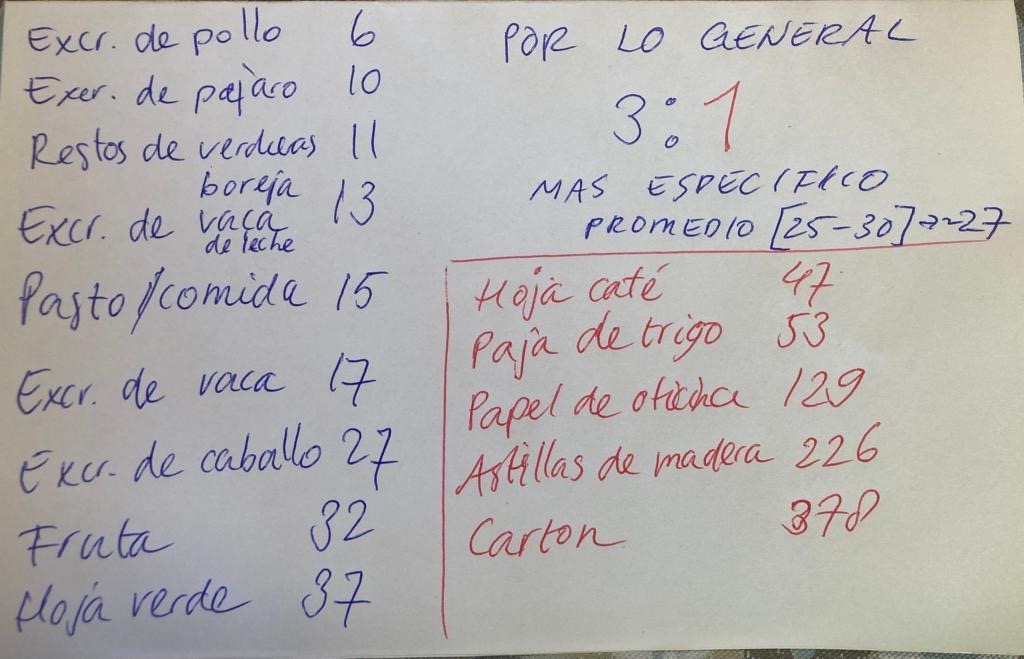 Excr. de pollo 6
Excr. de pájaro 10
Restos de verduras 11
boreja
Excr. de vaca 13
de leche
Pasto/comida 15
Excr. de vaca 17
Excr. de caballo 27
Fruta 32
Hoja verde 37
POR LO GENERAL
3:1
MAS ESPECIFICO
PROMEDIO [25-30]→~27
Hoja café 47
Paja de trigo 53
Papel de oficina 129
Astillas de madera 226
Carton 378